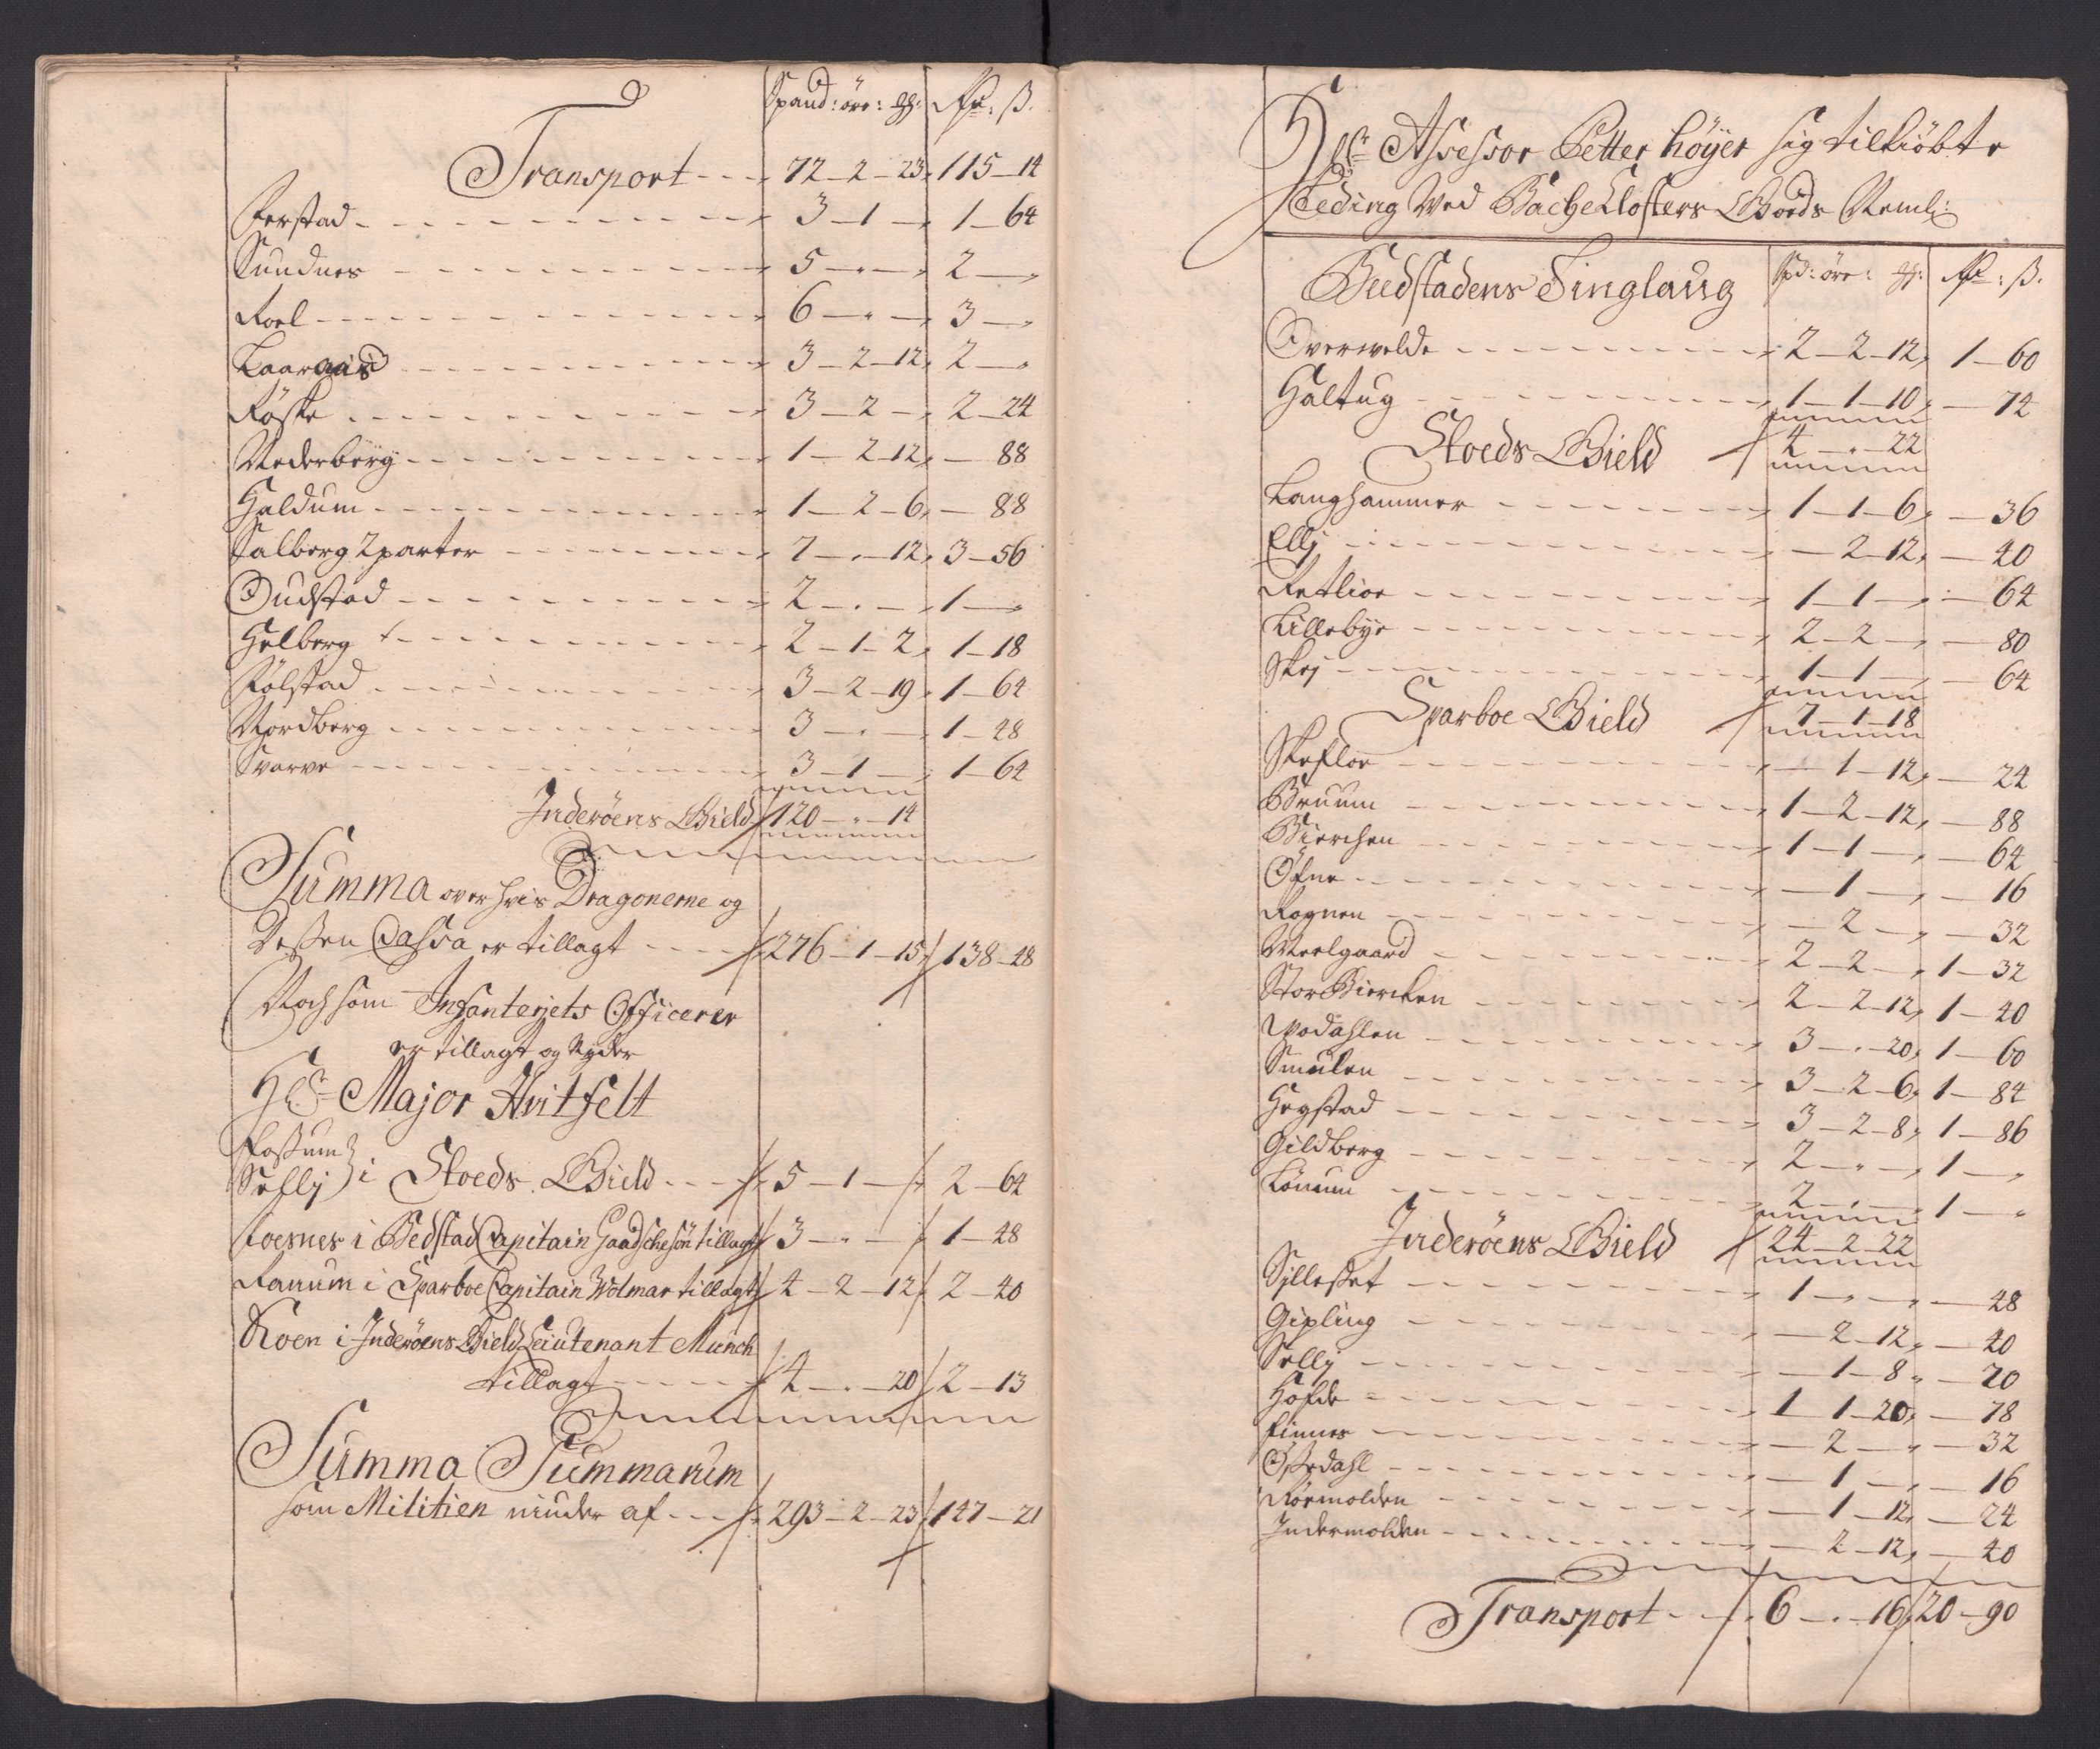 Spand: öre: Rdr: ß.
Transport 72 – 2 – 23, 115 – 14
Ferstad 3 – 1 – , 1 – 64
Sundnes 5 – „ – , 2 – „
Roel 6 – „ – , 3 – „
3 – 2 – 12, 2 – „
Røske 3 – 2 – , 2 – 24
Wederberg 1 – 2 – 12, – 88
Haldum 1 – 2 – 6, – 88
Salberg 2 parter 7 – „ – 12, 3 – 56
Oudstad 2 – „ – , 1 – „
Helberg 2 – 1 – 2, 1 – 18
Følstad 3 – 2 – 19, 1 – 64
Nordberg 3 – „ – , 1 – 48
Svarve 3 – 1 – , 1 – 64
Inderøens Gield 120 – „ – 14
Summa over hvis Dragonerne og
Dessen Cassa er tillagt 276 – 1 – 15, 138 – 48
Noch som Infanteriets Officerer
er tillagt og Nyder
Hr Major Hvitfelt
Fossum
Sellj i Stoeds Gield 5 – 1 – 2 – 64
Foesnes i Bedstad Capitain tillagt 3 – „ – 1 – 48
Ranum i Sparboe Capitain Wolmar tillagt 4 – 2 – 12 2 – 40
Roen i Inderøens Gield Leiutenant Munch
tillagt 4 – „ – 20 2 – 13
Summa Summarum
som Militien niuder af 293 – 2 – 23, 147 – 21
Hr Assessor Petter höÿer sig tilkiöbte
Leding Ved Bache Closters Goeds Neml:
Beedstadens Tinglaug Spd: öre: Rdr: ß.
Overvelde 2 – 2 – 12, 1 – 60
Haltug 1 – 1 – 10, – 74
Stoeds Gield 4 – „ – 22
Langhammer 1 – 1 – 6, – 36
Ellj – 2 – 12, – 40
Retlioe 1 – 1 – , – 64
Lillebye 2 – 2 – , – 80
Skej 1 – 1 – , – 64
Sparboe Gield 7 – 1 – 18
Skefloe – 1 – 12, – 24
Bruum 1 – 2 – 12, – 88
Bierchen 1 – 1 – , – 64
Öfne – 1 – , – 16
Rognen – 2 – , – 32
Meelgaard 2 – 2 – , 1 – 32
Stor Biercken 2 – 2 – 12, 1 – 40
Wodahlen 3 – „ – 20, 1 – 60
Smulen 3 – 2 – 6, 1 – 84
Hegstad 3 – 2 – 8, 1 – 86
Gildberg 2 – „ – , 1 – „
Lönum 2 – „ – , 1 – „
Inderöens Gield 24 – 2 – 22
Sillesset 1 – „ – „ – 48
Gipling – 2 – 12, – 40
Sellj – 1 – 8, – 20
Hofde 1 1 – 20, – 78
Finnes – 2 – „ – 32
– 1 – , – 16
Rörmolden – 1 – 12, – 24
Indermolden – 2 – 12, – 40
Transport 6 – „ – 16, 20 – 90